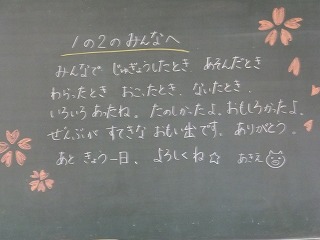 1の2のみんなへ
みんなで じゅぎょうしたとき あそんだとき
わらったとき おこったとき、ないたとき、
いろいろあったね。たのしかったよ。おもしろかったよ。
ぜんぶが すてきな おもい出です。ありがとう。
あと きょう一日、よろしくね☆ あきえ